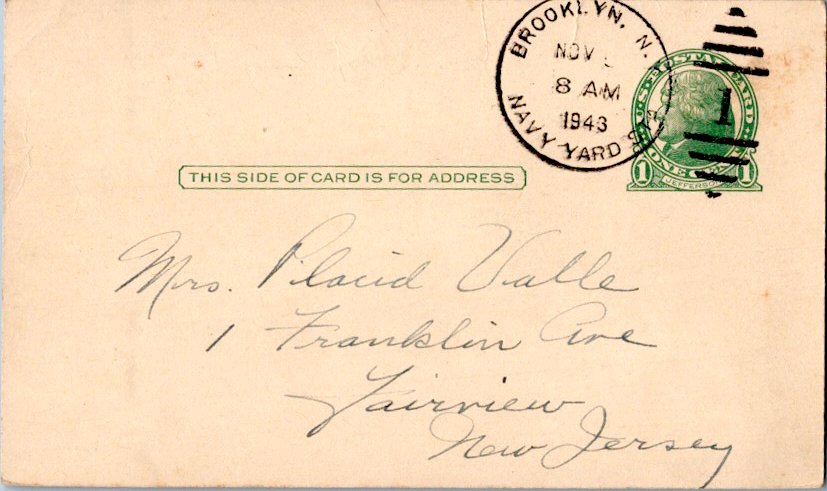 BROOKLYN, N.
NOV
8 AM
1943
NAVY YARD
U.S. POSTAL CARD
1 ONE CENT 1
JEFFERSON
1
THIS SIDE OF CARD IS FOR ADDRESS
Mrs. Placid Valle
1 Franklin Ave
Fairview
New Jersey